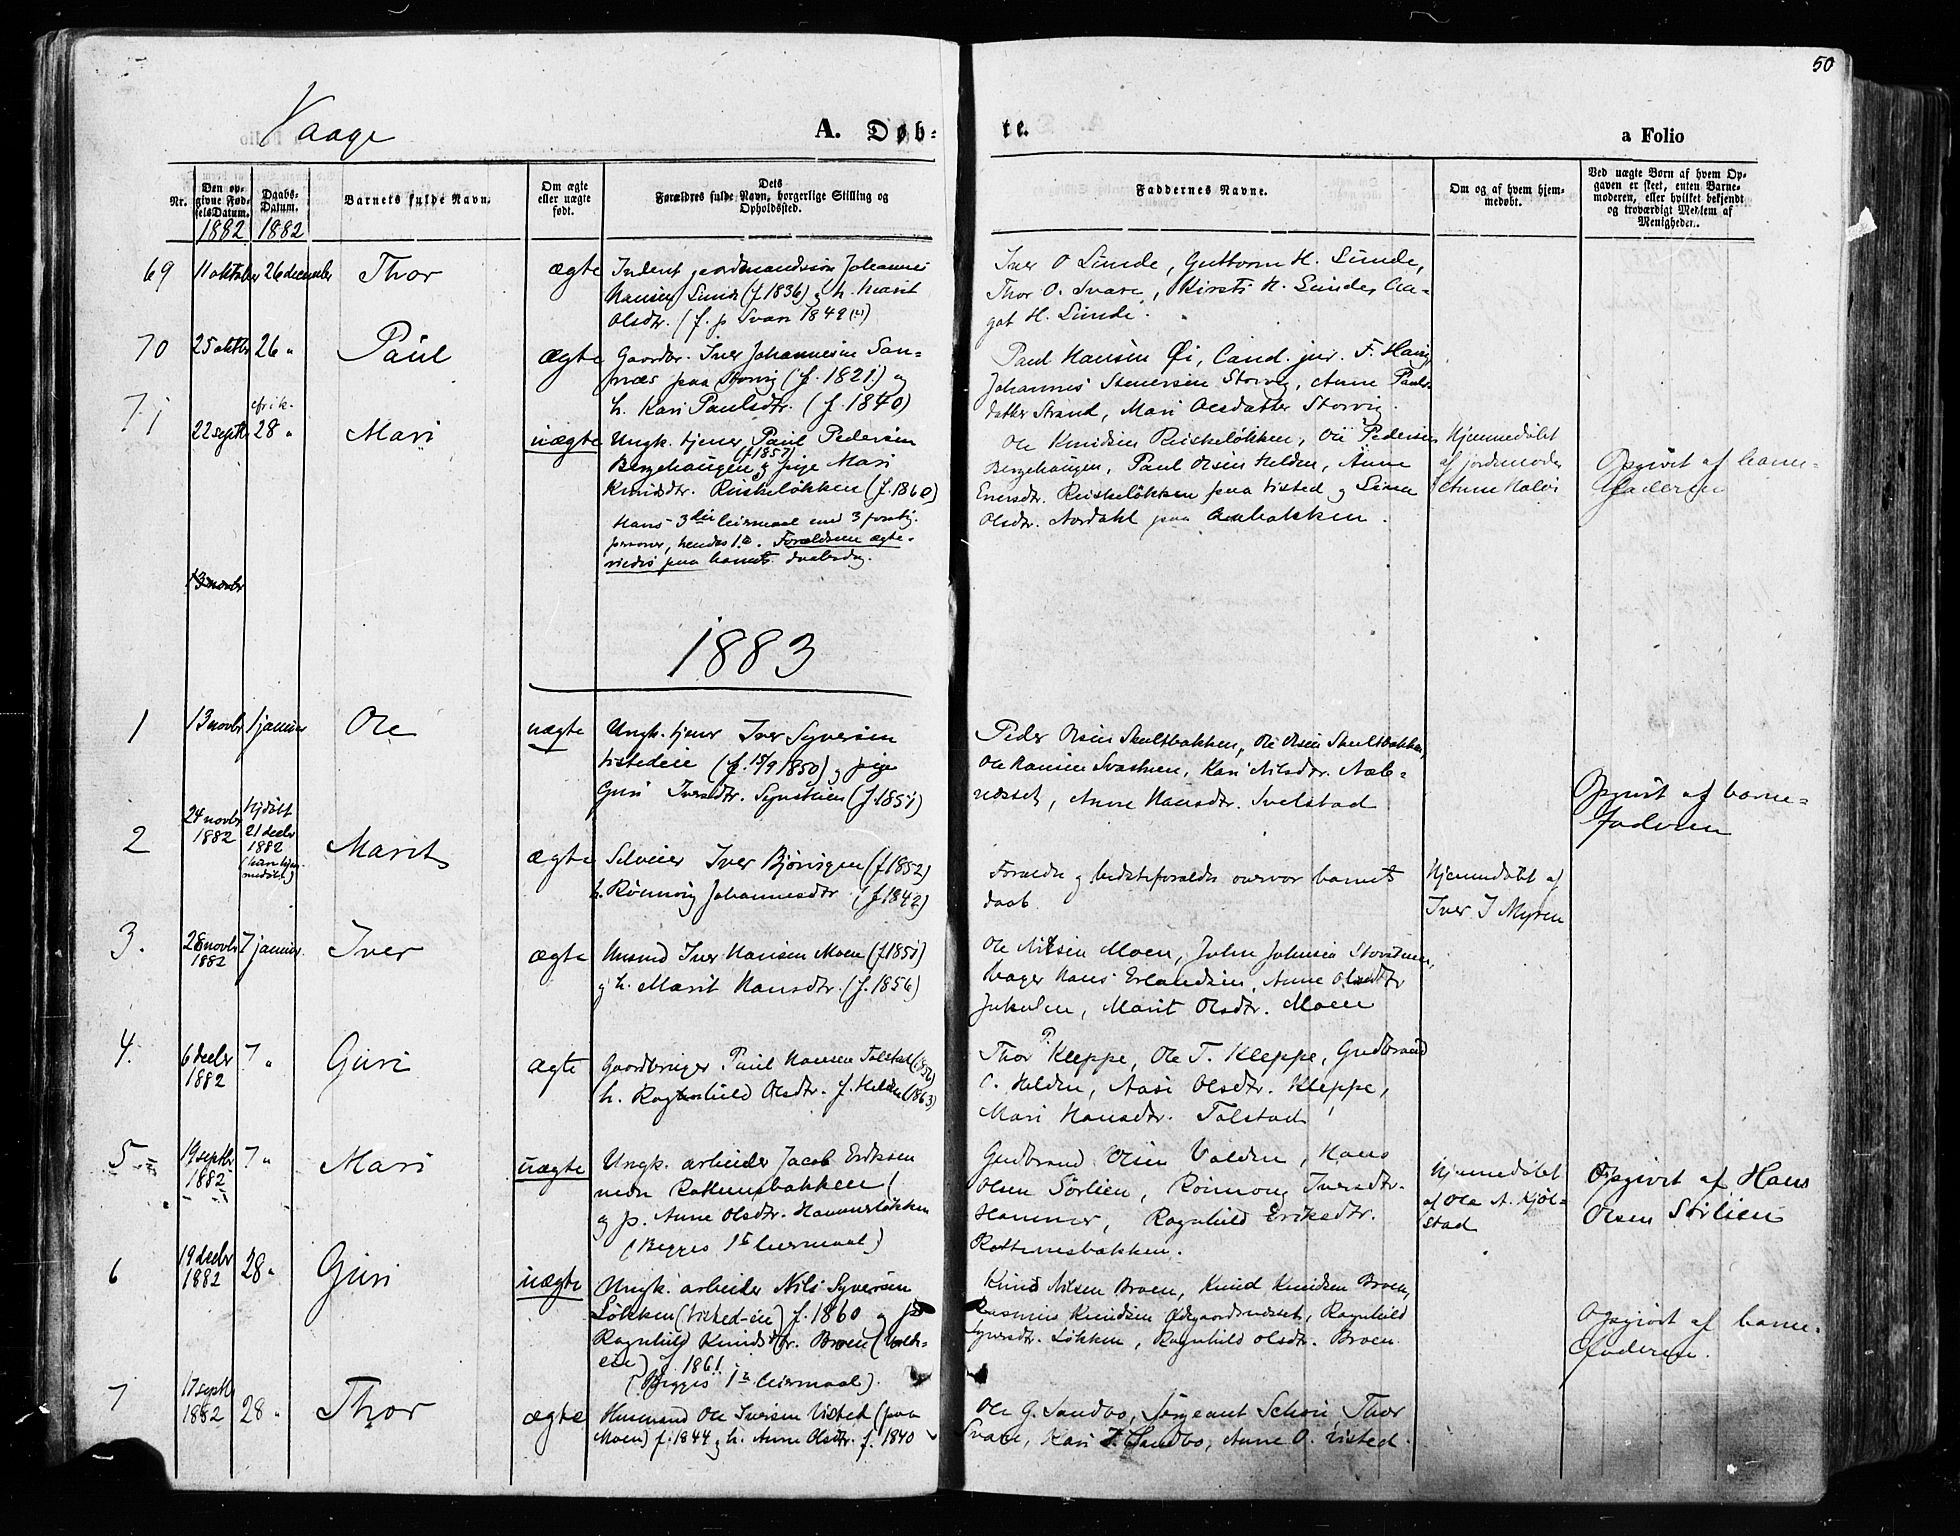 50
Vaage
A. Døb-
te.
a Folio
Nr.
Den op-
givne Fød-
selsDatum.
1882
Daabs-
Datum.
1882
Barnets fulde Navn.
Om ægte
eller uægte
født.
Dets
Forældres fulde Navn, borgerlige Stilling og
Opholdssted.
Faddernes Navne.
Om og af hvem hjem-
medøbt.
Ved uægte Børn af hvem Op-
gaven er skeet, enten Barne-
moderen, eller hvilket bekjendt
og troværdigt Medlem af
Menigheden.
69
11 oktober
26 december
Thor
ægte
Johannes
Hansen Sunde (f. 1836) og h. Marit
Olsdtr. (f. p Svare 1842
Iver O Sunde, Guttorm H. Sunde,
Thor O. Svare, Kirsti H. Sunde, Aa-
got H. Sunde.
70
25 oktbr
26 "
Paul
ægte
Gaardbr. Iver Johannesen San-
næs paa Storvig (f. 1821) og
h. Kari Paulsdtr. (f. 1840)
Paul Hansen Øi, Cand. jur. F. Haug
Johannes Stenersen Storvig, Anne Pauls-
datter Strand, Mari Olsdatter Storvig.
71
22 septbr
28 "
Mari
uægte
Ungk. tjener Paul Pedersen
(f 1857)
Bergehaugen og pige Mari
Knudsdtr. Ruskeløkken (f. 1860)
Hans 3die leiermaal med 3 forskj.
personer, hendes 1ste. Forældrene ægte-
viedes paa barnets daabsdag.
Ole Knudsen Ruskeløkken, Ole Pedersen
Bergehaugen, Paul Olsen Helden, Anne
Eversdtr. Ruskeløkken paa Visted og
Olsdtr. Nordahl paa
Hjemmedøbt
af jordemoder
Anne
Opgivet af barne-
faderen
13 novbr
1883
1
13 novbr
1 januar
Ole
uægte
Ungk. tjener Iver Syversen
Vistedeie (f. 15/9 1850) og pige
Guri Iversdtr. (f. 1851)
Peder Olsen Skultbakken, Ole Olsen Skultbakken,
Ole Hansen Kari Nilsdtr. Næb-
næsset, Anne Hansdtr. Svelstad
Opgivet af barne-
faderen
2
24 novbr
1882
hjdøbt
21 decbr
1882
Marit
ægte
Selveier Iver (f 1852)
h. Rønnvig Johannesdtr (f 1842)
Forældre og bedsteforældre overvar barnets
daab.
Hjemmedøbt af
Iver J Myren
3.
28 novbr
1882
7 januar
Iver
ægte
Husmd Iver Hansen Moen (f 1851)
og h. Marit Hansdtr. (f. 1856)
Ole Nilsen Moen, John Johnsen
bager Hans Erlandsen, Anne Olsdtr
Marit Olsdtr. Moen
4.
6 decbr
1882
7 "
Guri
ægte
Gaardbruger Paul Hansen Tolstad
h. Ragnhild Olsdtr. f. Helden (1863)
Thor P. Kleppe, Ole T. Kleppe, Gudbrand
O. Helden, Aasi Olsdtr. Kleppe,
Mari Hansdtr. Tolstad
5
19 septbr
1882
7 "
Mari
uægte
Ungk. arbeider Jacob Eriksen
nedr Rottemsbakken
og p. Anne Olsdtr. Hammerløkken
(Begges 1ste leiermaal)
Gudbrand Olsen Volden, Hans
Olsen Sørlien, Rønnoug Iversdtr.
Hammer, Ragnhild Eriksdtr.
Rottemsbakken.
Hjemmedøbt
af Ole A. Kjøl-
stad
Opgivet af Hans
Olsen Sørlien
6
19 decbr
1882
28 "
Guri
uægte
Ungk. arbeider Nils Syversen
Løkken (Visted-eie) f. 1860 og
Ragnhild Knudsdtr. Broen
eie) f. 1861
(Begges 1ste leiermaal).
Knud Nilsen Broen, Knud Knudsen Broen,
Rasmus Knudsen Ødegaardsnæsset, Ragnhild
Syversdtr. Løkken, Ragnhild Olsdtr. Broen
Opgivet af barne-
faderen.
7
17 septbr
1882
28 "
Thor
ægte
Husmand Ole Iversen Visted (paa
Moen) f. 1844 og h. Anne Olsdtr. f. 1840
Ole G. Sandbo, Sergeant Thor
Svare, Kari Sandbo, Anne O. Visted.